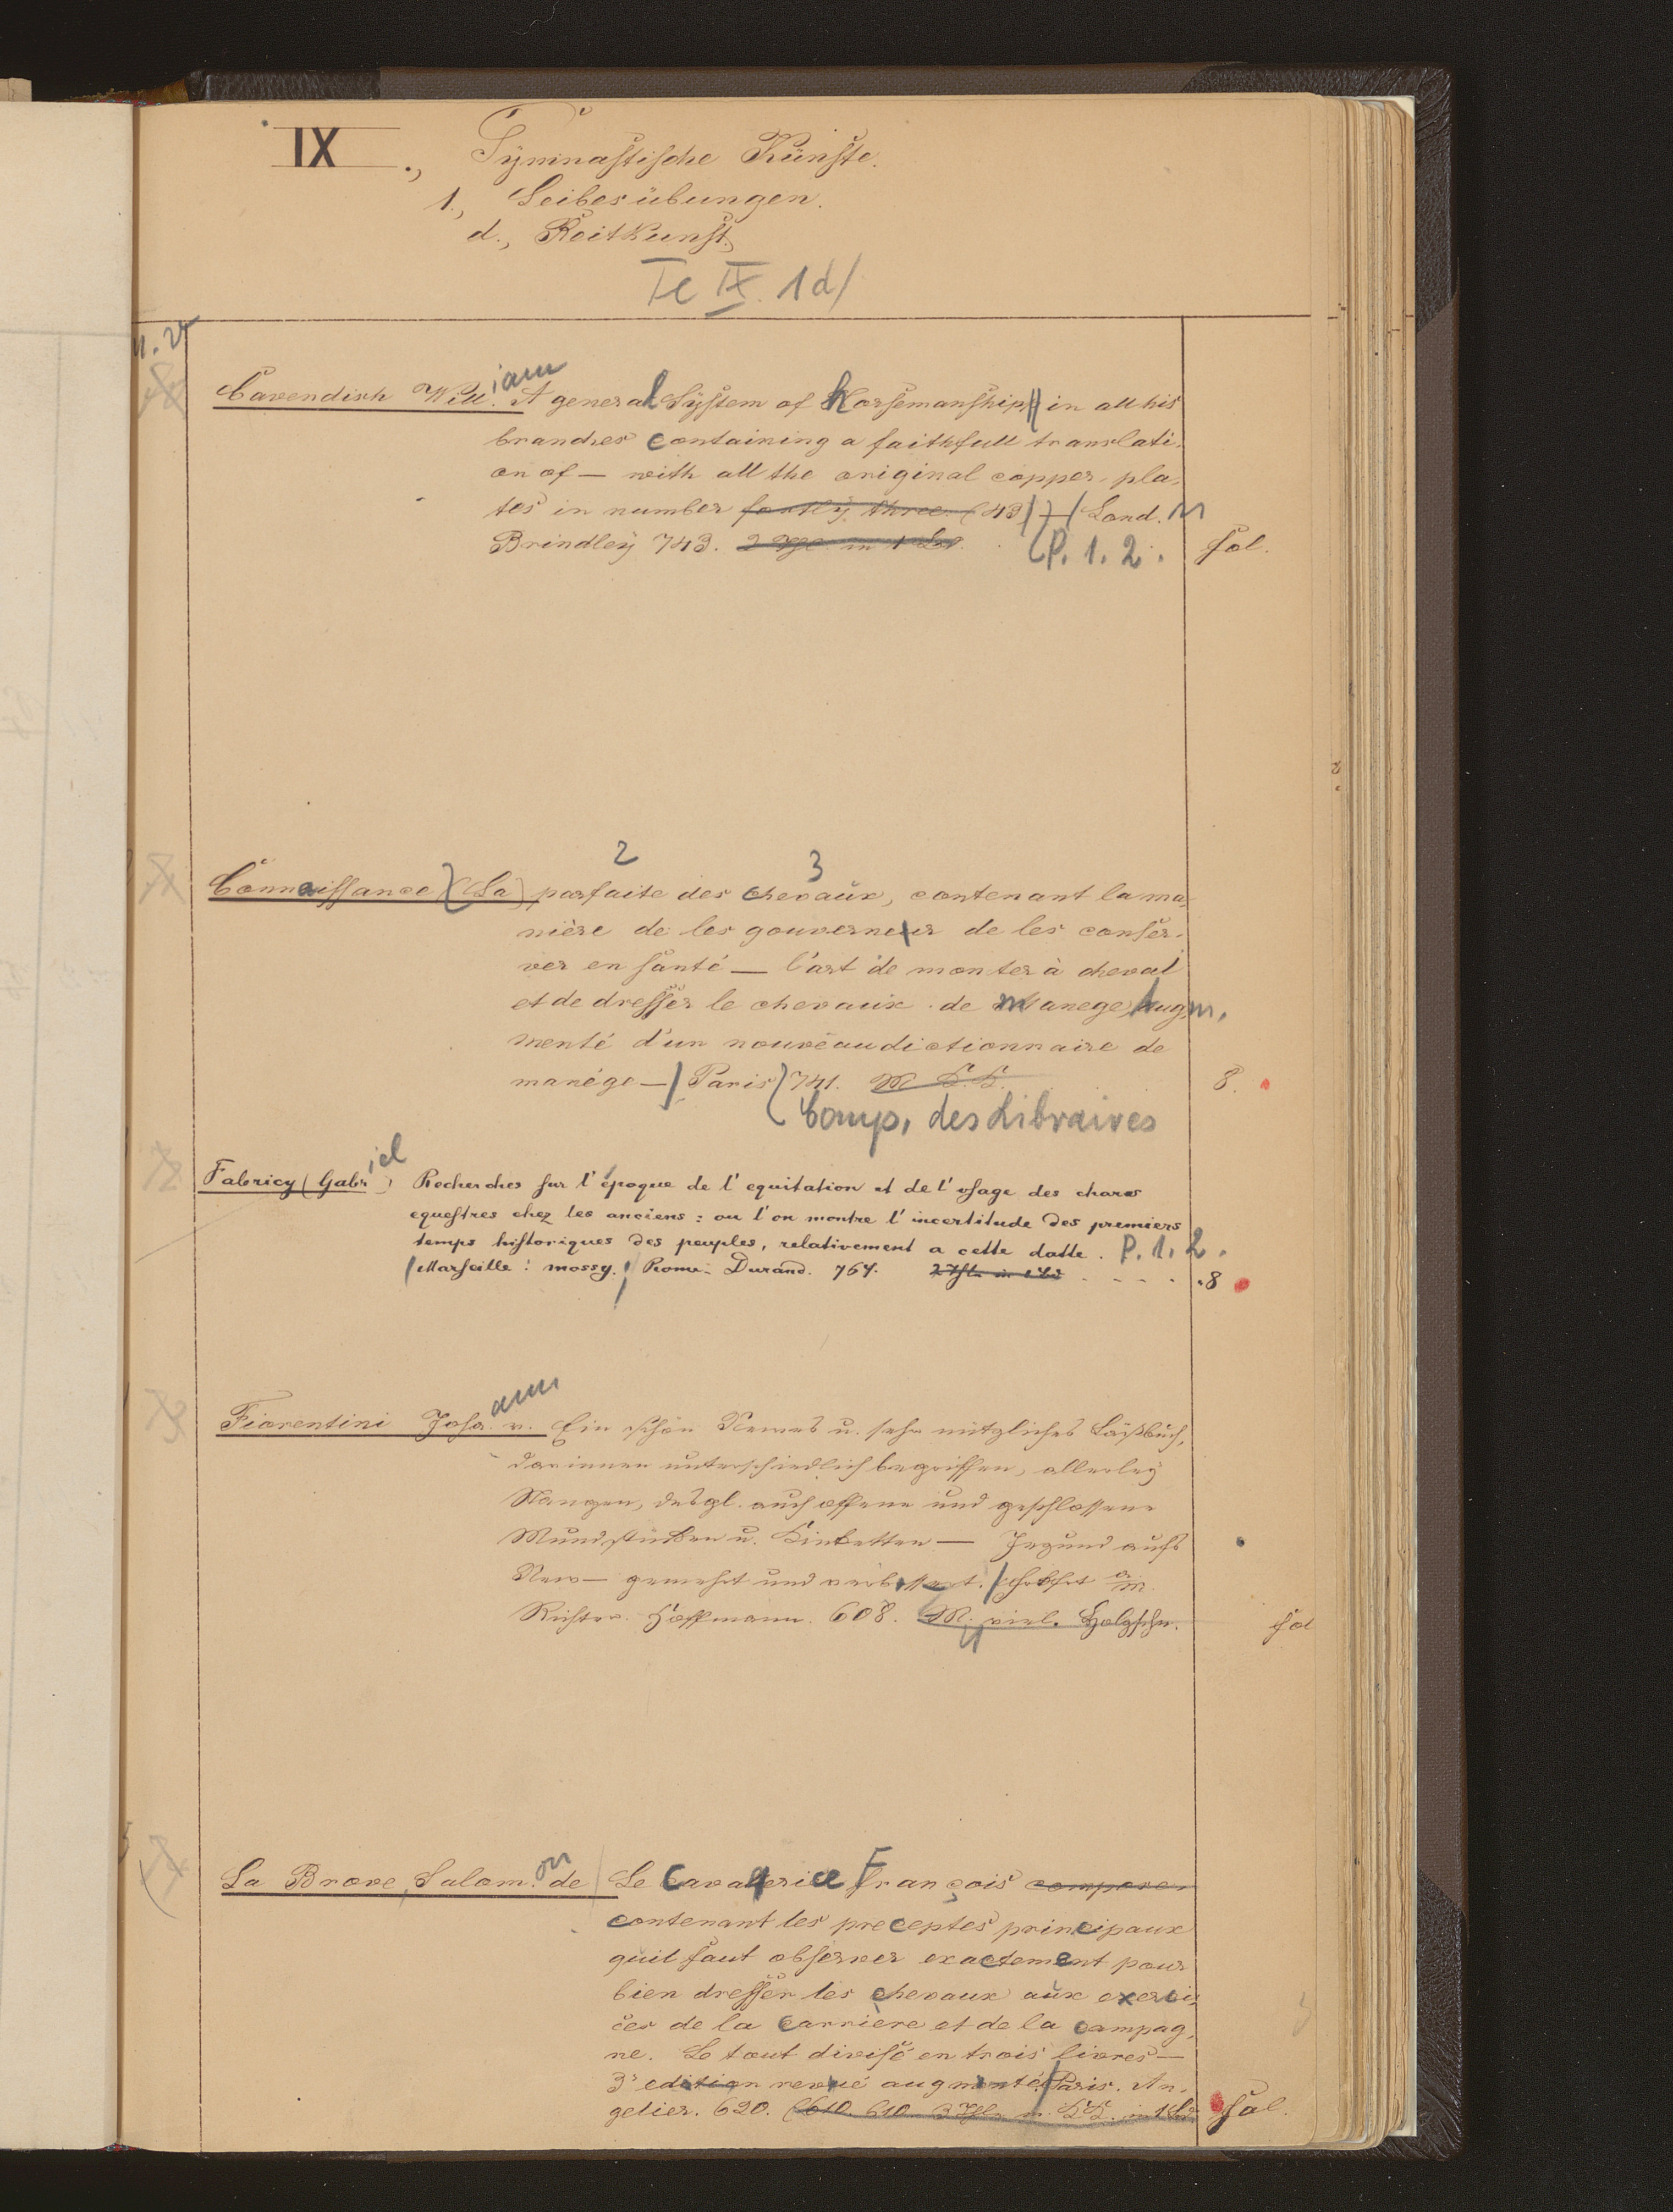 IX., Gymnastische Künste.
1., Leibesübungen.
d., Reitkunst.
Te IX. 1d/
Cavendish Will.iam A general System of Horsemanship in all his
branches containing a faithfull translati-
on of — with all the original copper-pla-
tes in number fortÿ three (43) — Lond.
Brindleÿ 743. (P. 1. 2. fol.
2 3
Connaissance (La) parfaite des chevaux, contenant la ma-
nière de les gouverner de les conser-
ver en santé — l'art de monter à cheval
et de dresser le chevaux de manege, Aug-m.
menté d'un nouveau dictionnaire de
manége — / Paris 741. 8.
Comp. des Libraires
Fabricy (Gabriel) Recherches sur l'époque de l'equitation et de l'usage des chars
equestres chez les anciens: ou l'on montre l'incertitude des premiers
temps historiques des peuples, relativement a cette datte. P. 1. 2.
Marseille: mossy. Rome: Durand. 764. 8
Fiorentini Johann v. Ein schön Newes u. sehr nützliches Bäißbuch,
darinnen unterschiedlich begriffen, allerley
Stangen, desgl. auch offene und geschlossene
Mundstücken u. Kinketten — Jezund aufs
New — gemehrt und verbessert. / Frkfrt a/M.
Richter. Hoffmann. 608. M. viel. Holzschn. fol
La Broue, Salomon de Le Cavalerice François
contenant les preceptes principaux
quil faut observer exactement pour
bien dresser les chevaux aux exerci-
ces de la carrière et de la campag-
ne. Le tout divisé en trois livres —
3e edition revué augmenté / Paris. An-
gelier. 620. fol.